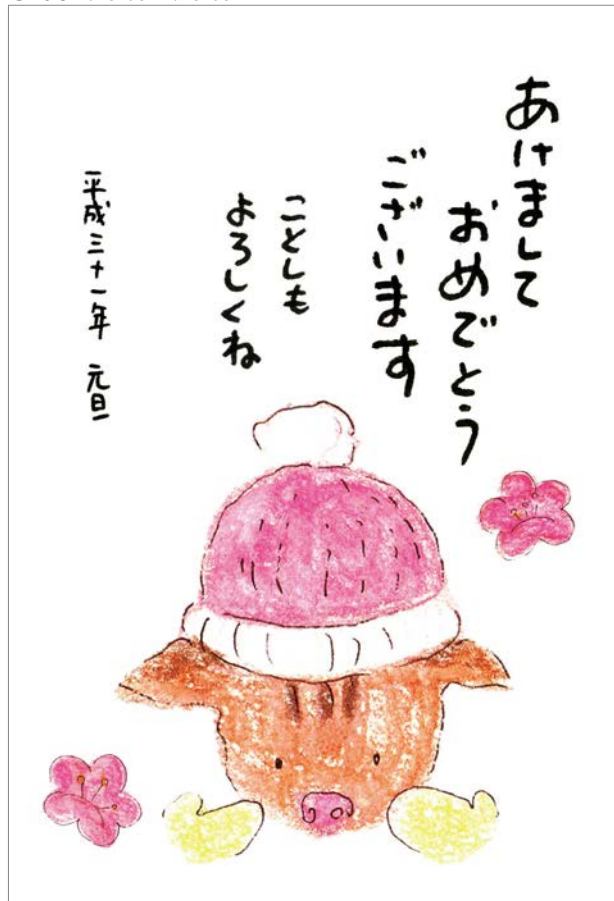 あけまして
おめでとう
ございます
ことしも
よろしくね
平成三十一年 元旦